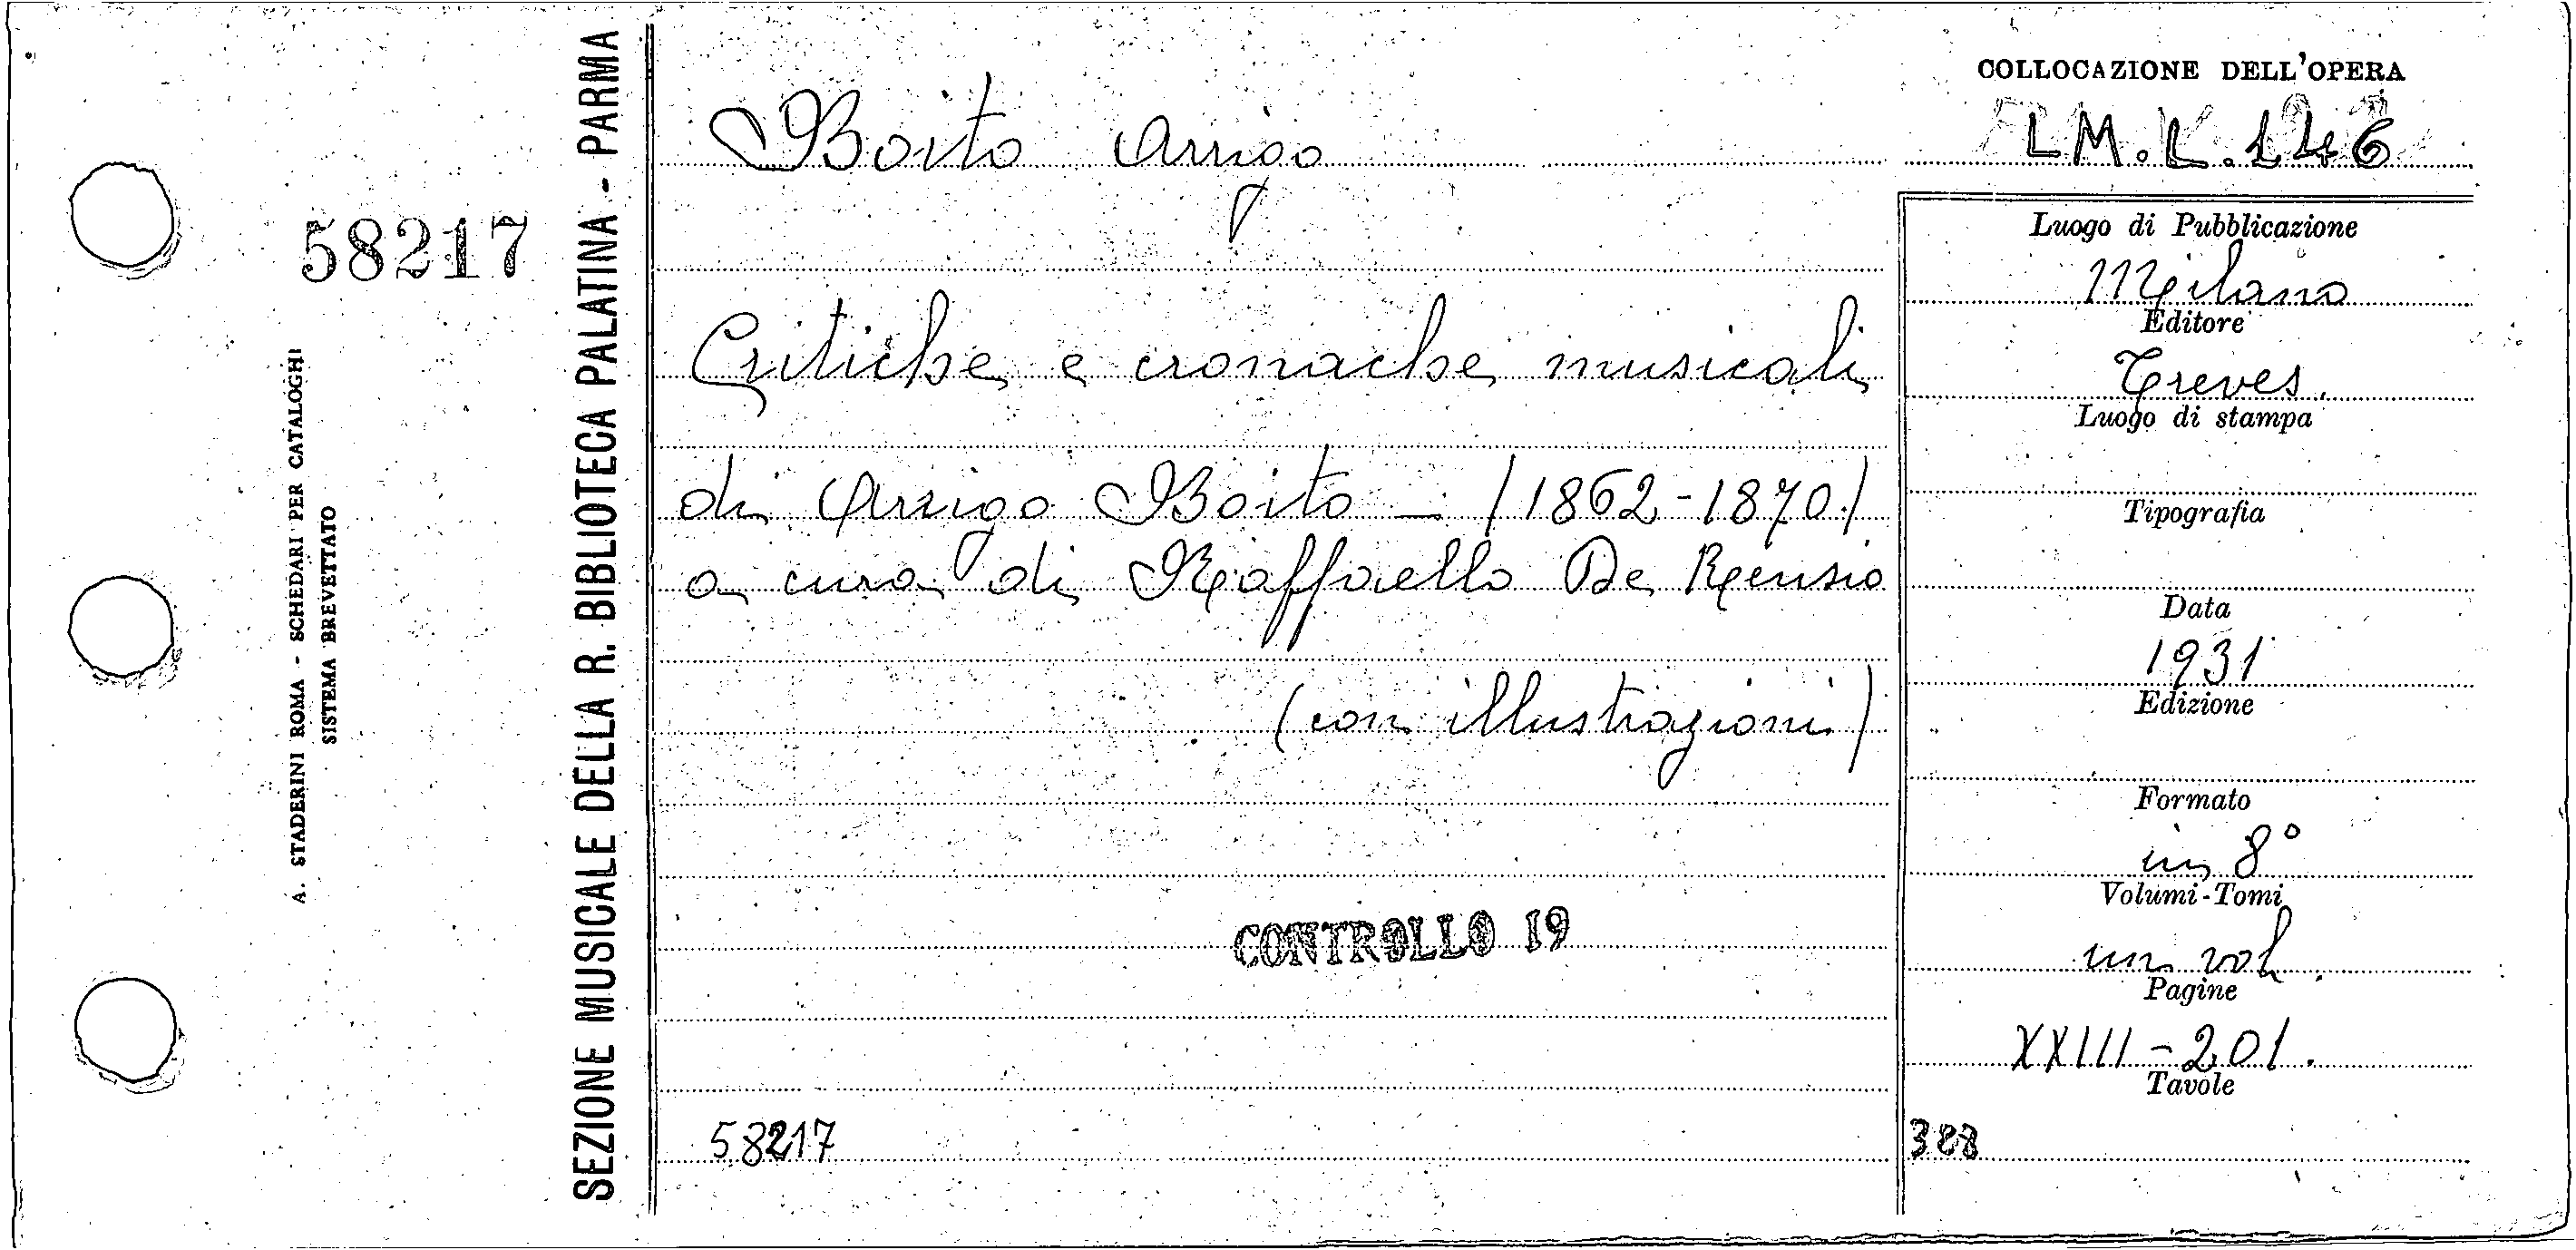 58217
A. STADERINI ROMA - SCHEDARI PER CATALOGHI
SISTEMA BREVETTATO
SEZIONE MUSICALE DELLA R. BIBLIOTECA PALATINA - PARMA
Boito Arrigo
Critiche e cronache musicali
di Arrigo Boito - (1862-1870)
a cura di Raffaello De Rensis
(con illustrazioni)
CONTROLLO 19
58217
COLLOCAZIONE DELL'OPERA
LM.L.146
Luogo di Pubblicazione
Milano
Editore
Treves.
Luogo di stampa
Tipografia
Data
1931
Edizione
Formato
in 8°
Volumi-Tomi
un vol.
Pagine
XXIII-201.
Tavole
388